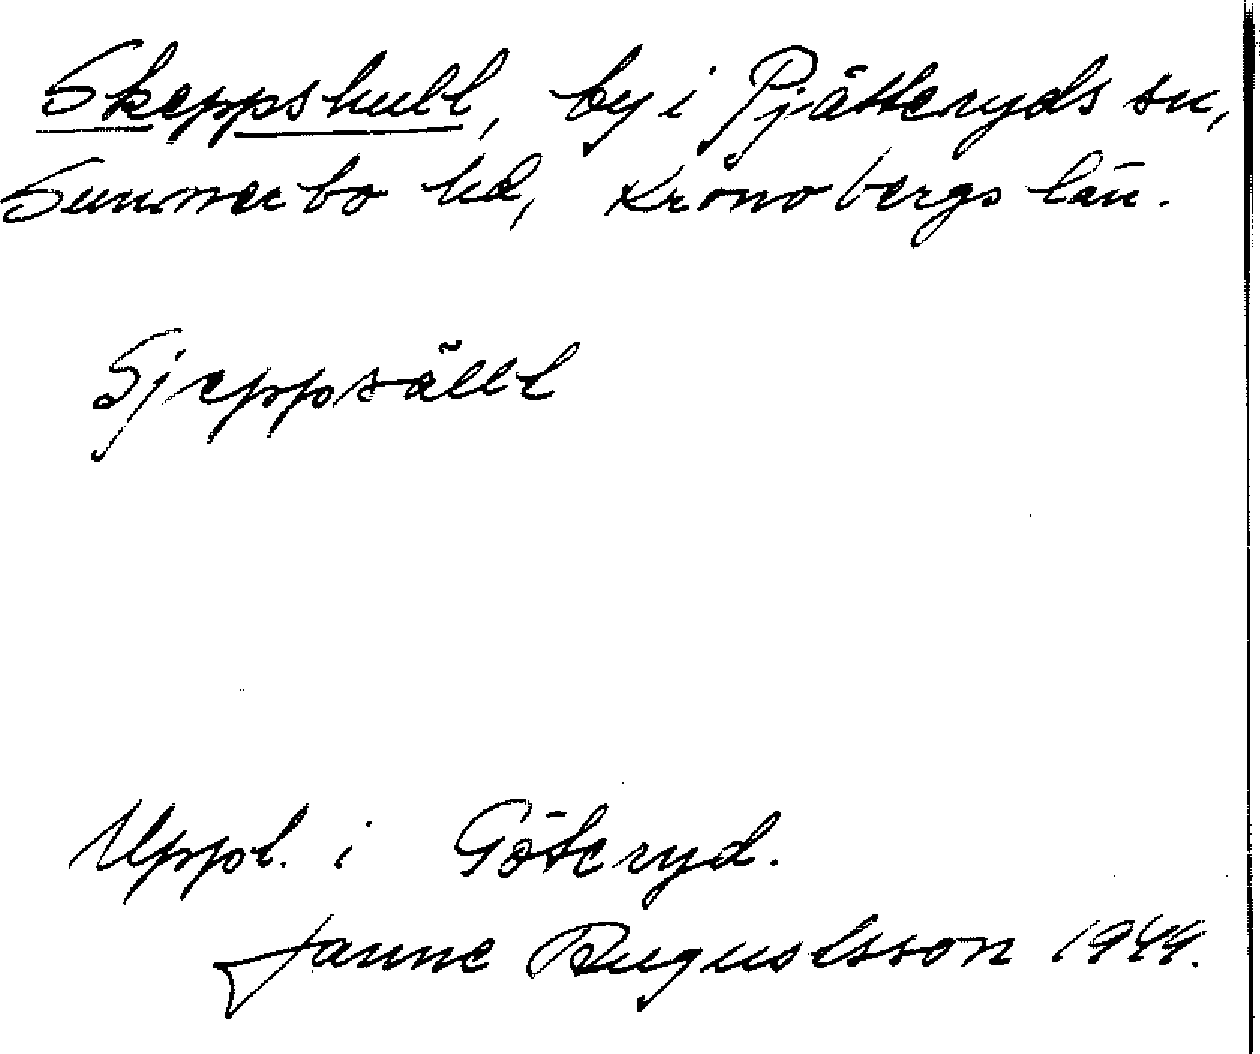 Skeppshult, by i Pjätteryds sn,
Sunnerbo hd, Kronobergs län.
Sjeppsällt
Uppt. i Göteryd.
Janne Augustsson 1944.